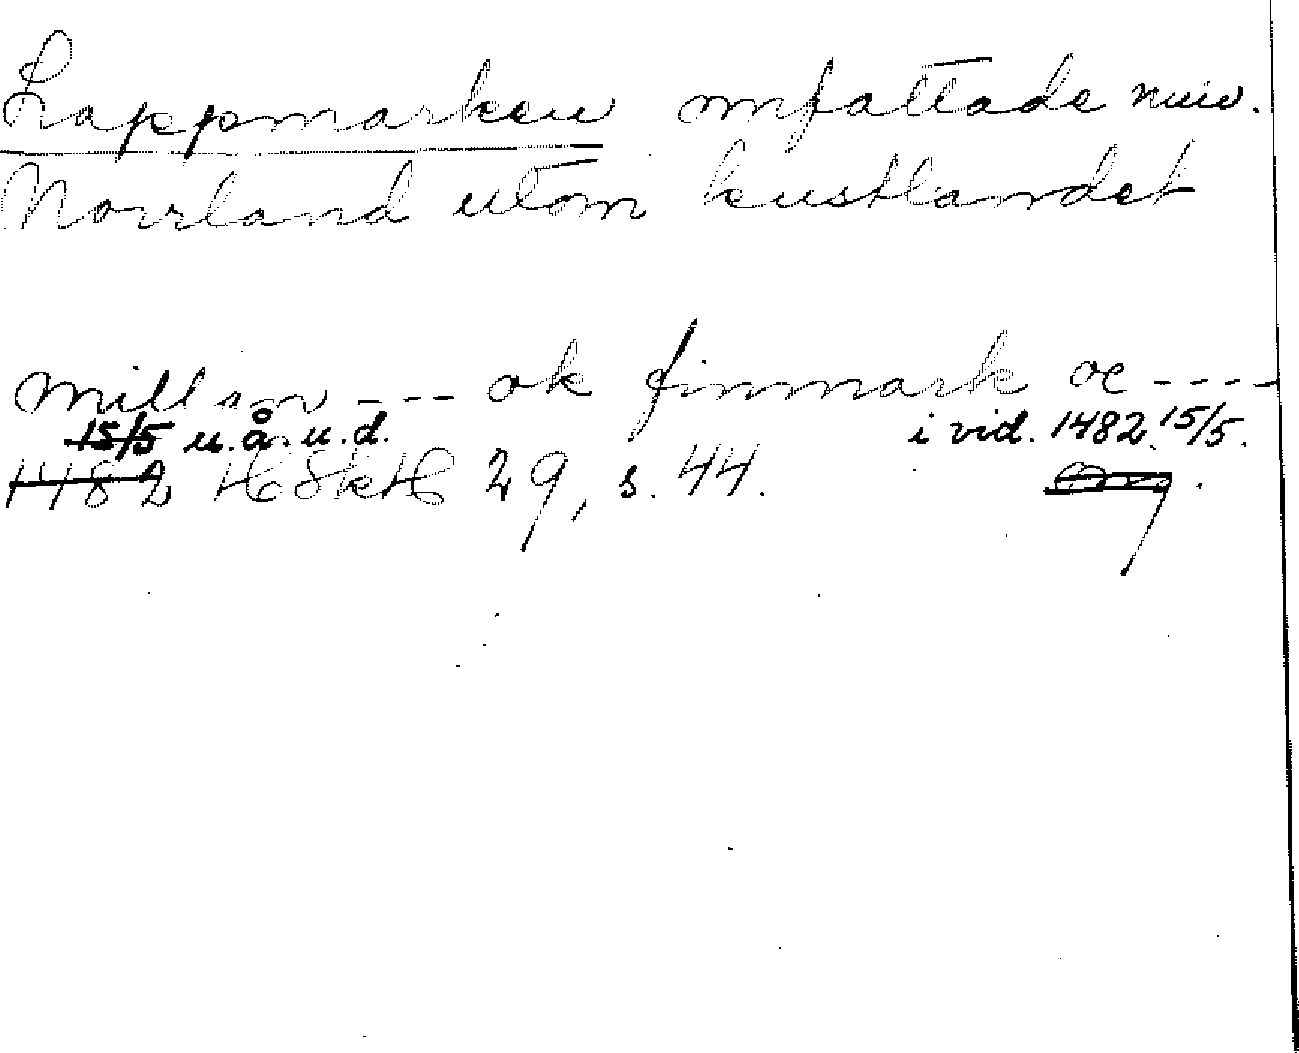 Lappmarken omfattade nuv.
Norrland utom kustlandet
millom --- ok finmark oc ----
15/5 u.å.u.d. i vid. 1482 15/5.
1482 HSkH 29, s. 44.